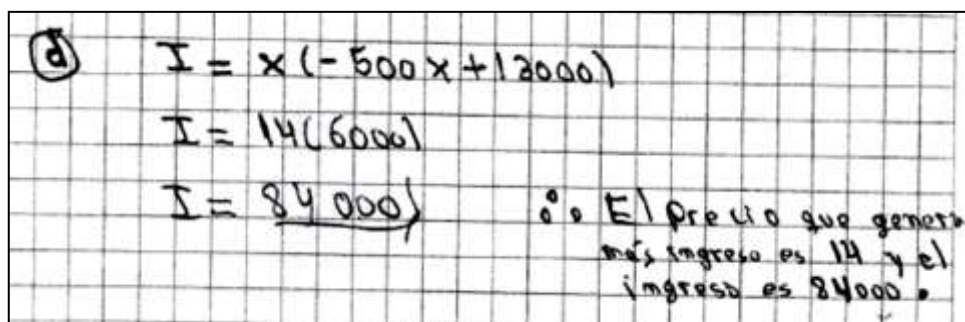 d I = x(-500x+13000)
I = 14(6000)
I = 84 000
∴ El precio que genera
más ingreso es 14 y el
ingreso es 84000.